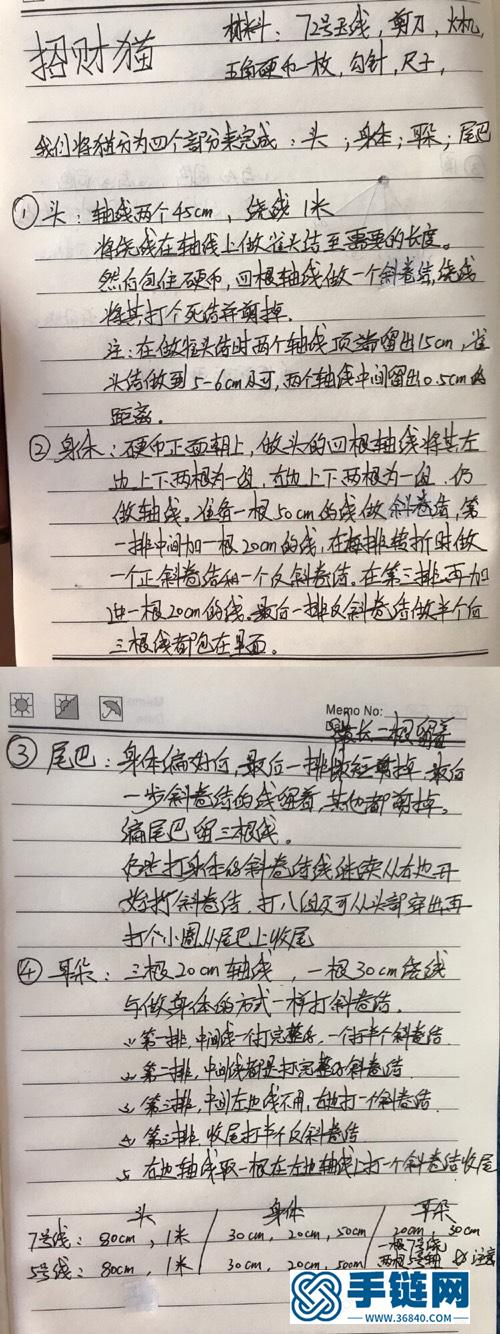 招财猫
材料: 72号玉线, 剪刀, 火机,
五角硬币一枚, 勾针, 尺子,
我们将猫分为四个部分来完成: 头; 身体; 耳朵; 尾巴
① 头: 轴线两个45cm, 绕线1米
将绕线在轴线上做雀头结至需要的长度。
然后包住硬币, 四根轴线做一个斜卷结, 绕线
将其打个死结并剪掉.
注: 在做雀头结时两个轴线顶端留出15cm, 雀
头结做到5-6cm即可, 两个轴线中间留出0.5cm的
距离。
② 身体: 硬币正面朝上, 做头的四根轴线将其左
边上下两根为一组, 右边上下两根为一组, 仍
做轴线。准备一根50cm的线做斜卷结, 第
一排中间加一根20cm的线, 在每排转折时做
一个正斜卷结和一个反斜卷结。在第三排再加
进一根20cm的线. 最后一排反斜卷结做半个后
三根线都包在里面。
Memo No:
最长二根留着
③ 尾巴: 身体编好后, 最后一排 剪掉. 最后
一步斜卷结的线留着, 其他都剪掉。
编尾巴留三根线。
打身体的斜卷结线继续从右边开
始打斜卷结. 打八组即可从头部穿出再
打个小圈从尾巴上收尾
④ 耳朵: 三根20cm轴线, 一根30cm绕线
与做身体的方式一样打斜卷结.
1. 第一排, 中间线一个打完整, 一个打半个斜卷结
2. 第二排, 中间线都是打完整斜卷结
3. 第三排, 中间左边线不用, 右边打一个斜卷结
4. 第三排 收尾打半个反斜卷结
5. 右边轴线取一根在左边轴线上打一个斜卷结收尾
头 / 身体 / 耳朵
7号线: 80cm, 1米 / 30cm, 20cm, 50cm / 20cm, 30cm
一根7号绕
5号线: 80cm, 1米 / 30cm, 20cm, 50cm / 两根5号轴 注意
手链网
WWW.36840.COM